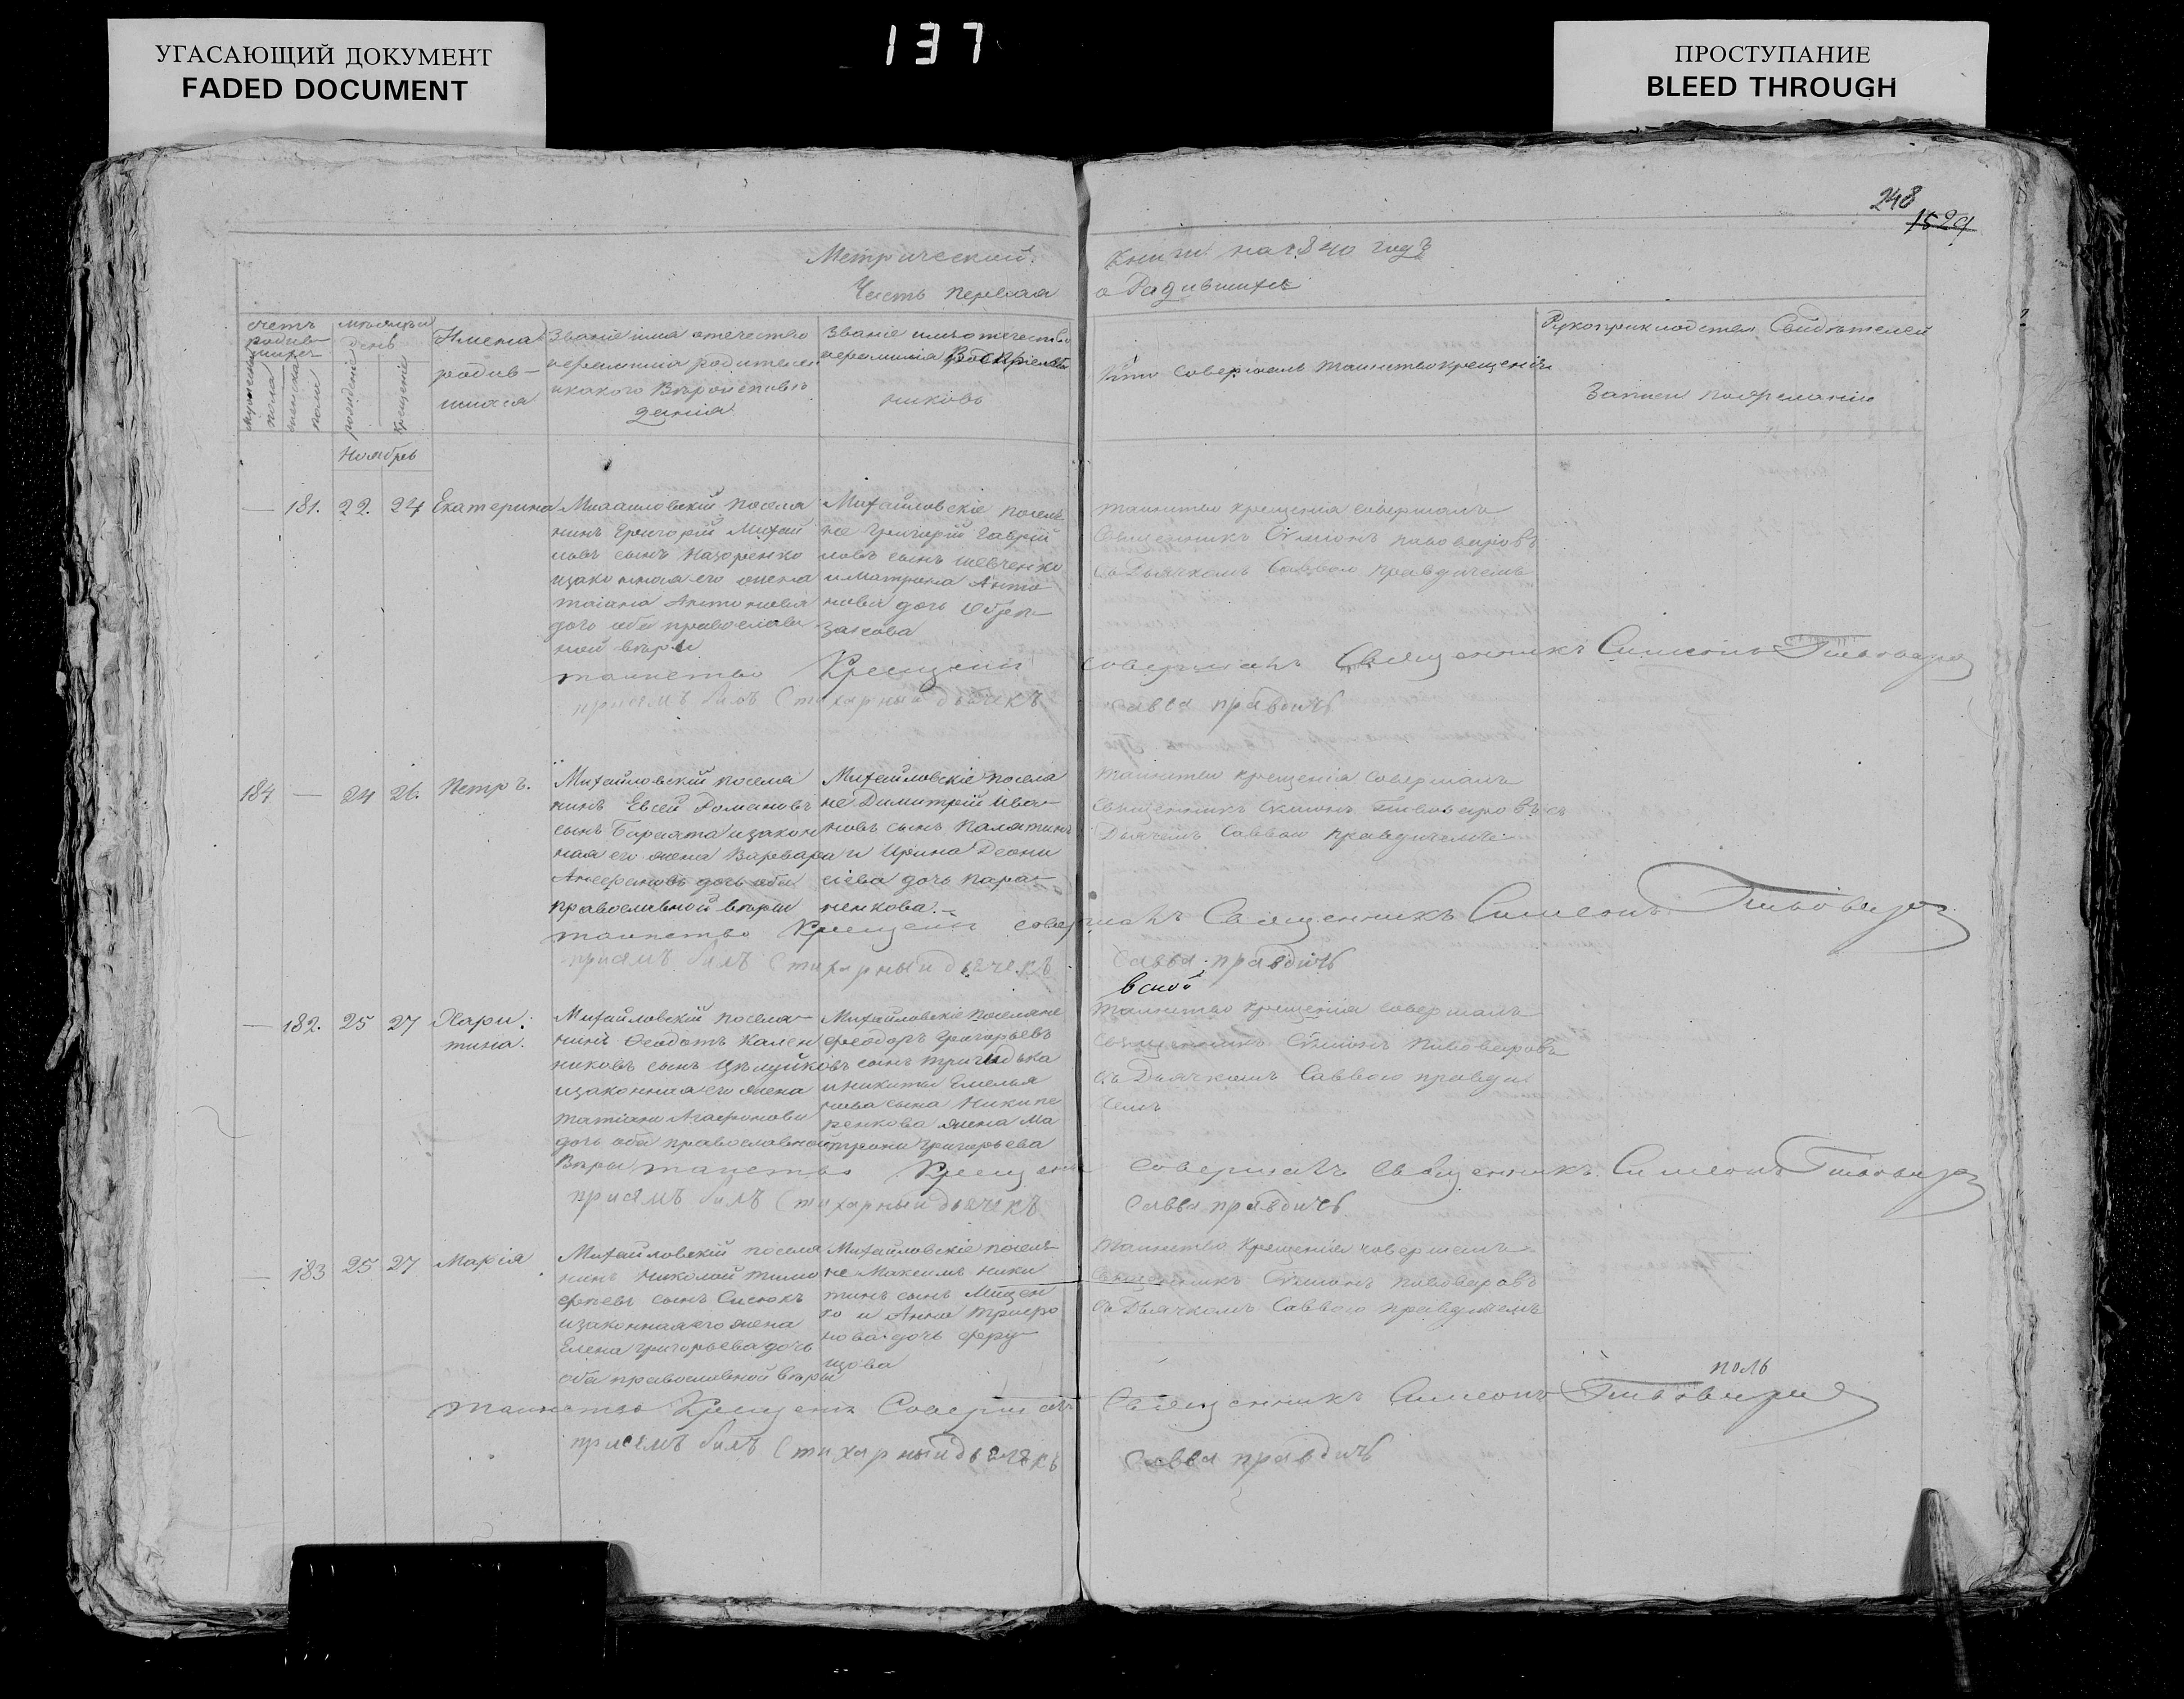 УГАСАЮЩИЙ ДОКУМЕНТ
FADED DOCUMENT
137
ПРОСТУПАНИЕ
BLEED THROUGH
248
1529
Метрической
книги на 1840 годъ
Часть первая
о Радившихся
счетъ родив-шихся
мужеска пола
женска пола
мѣсяцъ и день
рожденія
крещенія
Имена
родив-
шихся
Званіе имя отечество
и фамилія родителей
и какого Вѣроисповѣ
данія
Званіе имя отечество
и фамилія Воспріем
никовъ
Кто совершалъ таинство крещенія
Рукоприкладство Свидѣтелей
Записи по желанію
Ноябрь
— 181. 22. 24 Екатерина
Михаиловскій поселя
нинъ Григорій Михай
ловъ сынъ Назоренко
и законная его жена
татіана Антонова
дочь оба православ
ной вѣры
Михайловскіе поселя
не Григорій Гаврій
ловъ сынъ шевченко
и Матрона Анто
нова дочь
Таинство крещенія совершалъ
Священникъ Симіонъ пивоваровъ
съ Дьячкомъ Саввою правдичемъ
таинство Крещенія совершалъ Священникъ Симеонъ Пивоваров
присемъ билъ Стихарный дьячекъ Савва правдичь
184 — 24 26. Петръ.
Михайловскій поселя
нинъ Евсей Романовъ
сынъ и закон
ная его жена Варвара
дочь оба
православной вѣры
Михайловскіе поселя
не Димитрій Ива-
новъ сынъ
и Ирина Деони
сіева дочь пара-
ненкова.
Таинство крещенія совершалъ
священникъ Симіонъ Пивоваровъ съ
Дьячемъ Саввою правдичемъ.
таинство Крещенія совершалъ Священникъ Симеонъ Пивоваров
присемъ билъ Стихарный дьячекъ Савва правдичь
— 182. 25 27 Хари:
тина.
Михайловскій поселя-
нинъ Феодотъ Кален
никовъ сынъ Цѣлуйко
и законная его жена
татіана Агафонова
дочь оба православной
Вѣры
Михайловскіе поселяне
феодоръ Григорьевъ
въ сынъ
и никиты Емелья
нова сына Никипе
ренкова жена Ма
трона Григорьева
Таинство крещенія совершалъ
священникъ Симіонъ пивоваровъ
съ Дьячкомъ Саввою правди
чемъ
таинство Крещенія совершалъ священникъ Симеонъ Пивоваров
присемъ билъ Стихарный дьячекъ Савва правдичь
— 183 25 27 Марія
Михайловскій поселя
нинъ Николай тимо
феевъ сынъ Сисюкъ
и законная его жена
Елена григорьева дочь
оба православной вѣры
Михайловскіе поселя-
не Максимъ ники
тинъ сынъ Мицен
ко и Анна трифо
нова дочь
Таинство крещенія совершалъ
священникъ Симіонъ пивоваровъ
съ Дьячкомъ Саввою правдичемъ
таинство Крещенія Совершалъ Священникъ Симеонъ Пивоваров
присемъ билъ Стихарный дьячекъ Савва правдичь